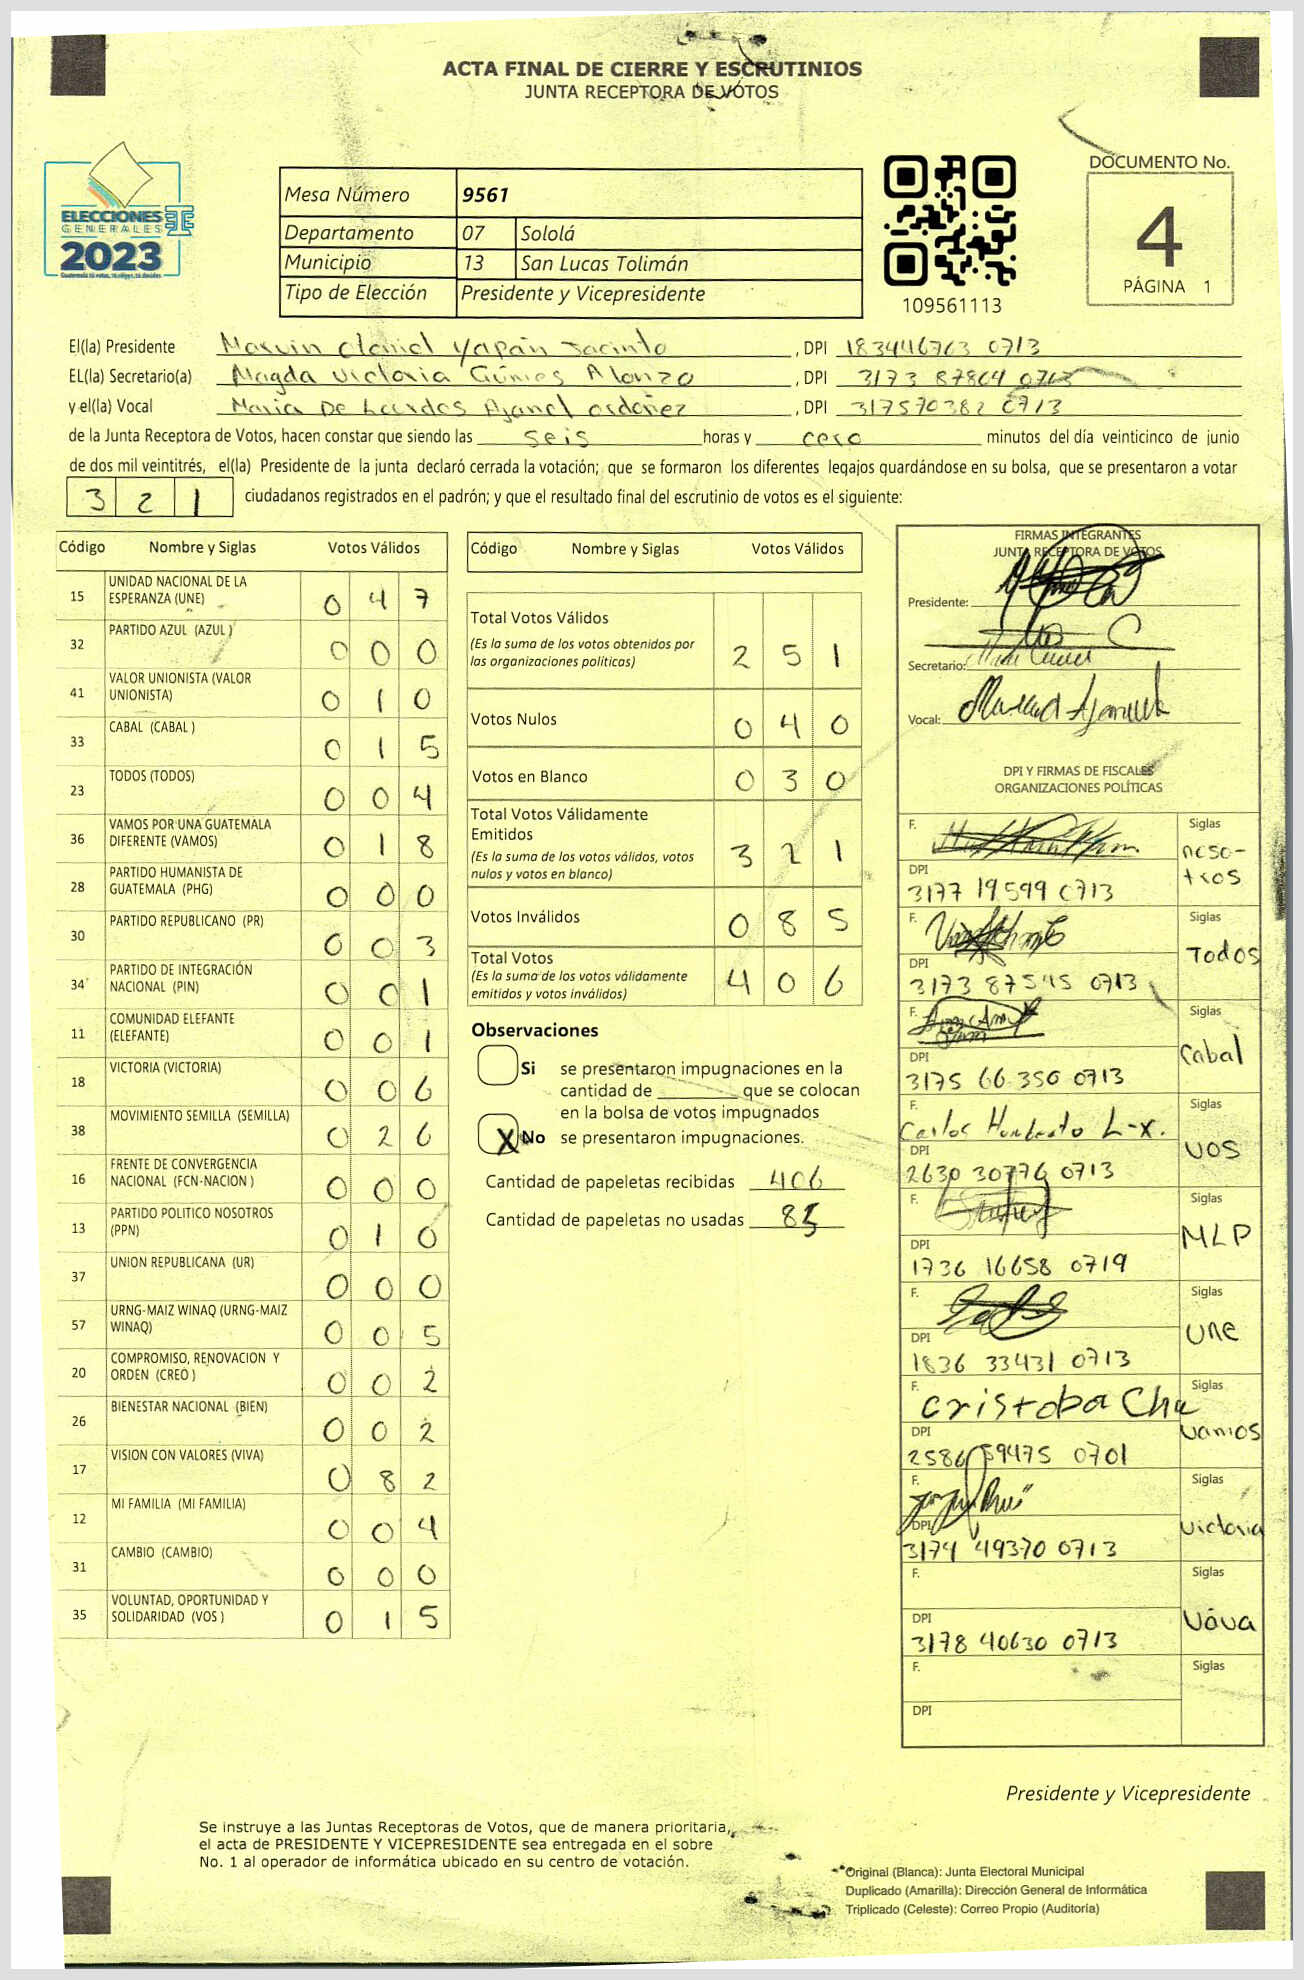 ACTA FINAL DE CIERRE Y ESCRUTINIOS
JUNTA RECEPTORA DE VOTOS
ELECCIONES
GENERALES
2023
Mesa Número 9561
Departamento 07 Sololá
Municipio 13 San Lucas Tolimán
Tipo de Elección Presidente y Vicepresidente
109561113
DOCUMENTO No.
4
PÁGINA 1
El(la) Presidente Marvin Yapán Jacinto , DPI 183446763 0713
EL(la) Secretario(a) Magda Victoria Gómes Alonzo , DPI 3173 87804 0713
y el(la) Vocal Maria De Lourdes Ajanel Ordoñez , DPI 317570382 0713
de la Junta Receptora de Votos, hacen constar que siendo las seis horas y cero minutos del día veinticinco de junio
de dos mil veintitrés, el(la) Presidente de la junta declaró cerrada la votación; que se formaron los diferentes legajos guardándose en su bolsa, que se presentaron a votar
3 2 1 ciudadanos registrados en el padrón; y que el resultado final del escrutinio de votos es el siguiente:
Código Nombre y Siglas Votos Válidos
15 UNIDAD NACIONAL DE LA ESPERANZA (UNE) 0 4 7
32 PARTIDO AZUL (AZUL ) 0 0 0
41 VALOR UNIONISTA (VALOR UNIONISTA) 0 1 0
33 CABAL (CABAL ) 0 1 5
23 TODOS (TODOS) 0 0 4
36 VAMOS POR UNA GUATEMALA DIFERENTE (VAMOS) 0 1 8
28 PARTIDO HUMANISTA DE GUATEMALA (PHG) 0 0 0
30 PARTIDO REPUBLICANO (PR) 0 0 3
34 PARTIDO DE INTEGRACIÓN NACIONAL (PIN) 0 0 1
11 COMUNIDAD ELEFANTE (ELEFANTE) 0 0 1
18 VICTORIA (VICTORIA) 0 0 6
38 MOVIMIENTO SEMILLA (SEMILLA) 0 2 6
16 FRENTE DE CONVERGENCIA NACIONAL (FCN-NACION ) 0 0 0
13 PARTIDO POLITICO NOSOTROS (PPN) 0 1 0
37 UNION REPUBLICANA (UR) 0 0 0
57 URNG-MAIZ WINAQ (URNG-MAIZ WINAQ) 0 0 5
20 COMPROMISO, RENOVACION Y ORDEN (CREO ) 0 0 2
26 BIENESTAR NACIONAL (BIEN) 0 0 2
17 VISION CON VALORES (VIVA) 0 8 2
12 MI FAMILIA (MI FAMILIA) 0 0 4
31 CAMBIO (CAMBIO) 0 0 0
35 VOLUNTAD, OPORTUNIDAD Y SOLIDARIDAD (VOS ) 0 1 5
Código Nombre y Siglas Votos Válidos
Total Votos Válidos
(Es la suma de los votos obtenidos por
las organizaciones políticas) 2 5 1
Votos Nulos 0 4 0
Votos en Blanco 0 3 0
Total Votos Válidamente
Emitidos
(Es la suma de los votos válidos, votos
nulos y votos en blanco) 3 2 1
Votos Inválidos 0 8 5
Total Votos
(Es la suma de los votos válidamente
emitidos y votos inválidos) 4 0 6
Observaciones
Si se presentaron impugnaciones en la
cantidad de ________ que se colocan
en la bolsa de votos impugnados
X No se presentaron impugnaciones.
Cantidad de papeletas recibidas 406
Cantidad de papeletas no usadas 85
FIRMAS INTEGRANTES
JUNTA RECEPTORA DE VOTOS
Presidente:
Secretario:
Vocal:
DPI Y FIRMAS DE FISCALES
ORGANIZACIONES POLÍTICAS
F. Siglas
noso-
tros
DPI
3177 19599 0713
F. Siglas
Todos
DPI
3173 87545 0713
F. Siglas
Cabal
DPI
3175 66 350 0713
F. Siglas
Carlos Humberto L-x.
VOS
DPI
2630 30776 0713
F. Siglas
MLP
DPI
1736 16658 0719
F. Siglas
UNE
DPI
1836 33431 0713
F. Siglas
Cristoba Cha
Vamos
DPI
2586 59475 0701
F. Siglas
Victoria
DPI
3174 49370 0713
F. Siglas
Vava
DPI
3178 40630 0713
F. Siglas
DPI
Presidente y Vicepresidente
Se instruye a las Juntas Receptoras de Votos, que de manera prioritaria,
el acta de PRESIDENTE Y VICEPRESIDENTE sea entregada en el sobre
No. 1 al operador de informática ubicado en su centro de votación.
Original (Blanca): Junta Electoral Municipal
Duplicado (Amarilla): Dirección General de Informática
Triplicado (Celeste): Correo Propio (Auditoría)